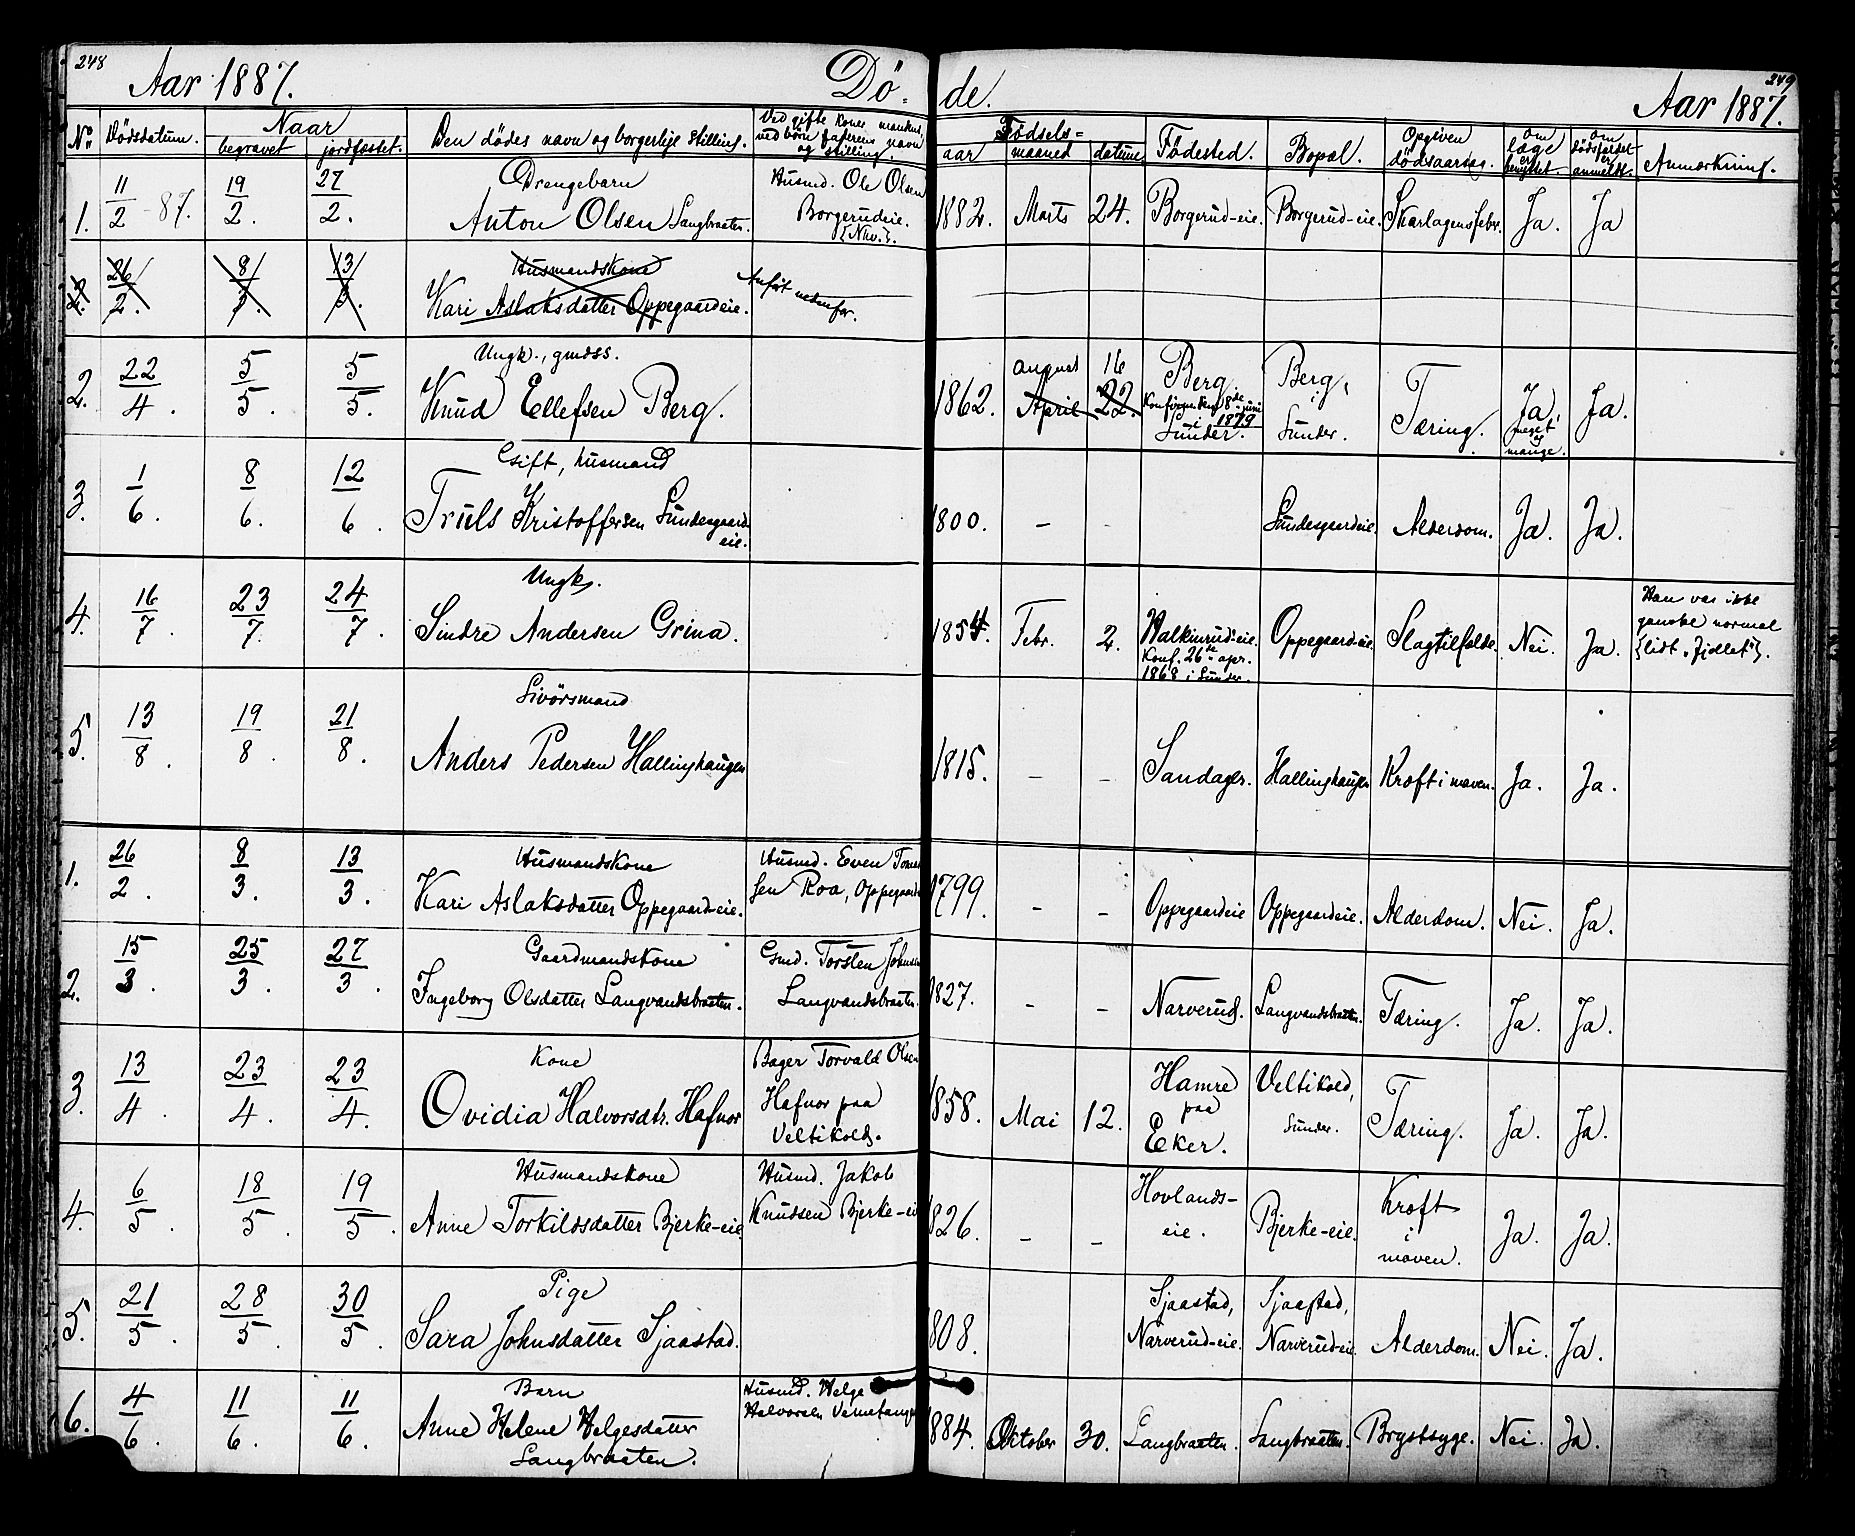 248
Aar 1887.
Dö-
de.
249
Aar 1887.
No
Dödsdatum.
Naar
begravet
jordfæstet.
Den dödes navn og borgerlige stilling.
Ved gifte koner mandens,
ved börn faderens navn
og stilling.
Födsels-
aar
maaned
datum
Födested.
Bopæl.
Opgiven
dödsaarsag.
om
læge
er
benyttet.
om
dödsfaldet
er
anmeldt.
Anmærkning.
1.
11/2 -87.
19/2.
27/2.
Drengebarn
Anton Olsen Langbraaten.
Husmd. Ole Olsen
Borgerudeie.
1882.
Marts
24.
Borgerud-eie.
Borgerud-eie.
Skarlagensfeber.
Ja.
Ja
2.
26/2.
8/3.
13/3.
Husmandskone
Kari Aslaksdatter Oppegaardeie.
Anfört nedenfor.
2.
22/4.
5/5.
5/5.
Ungk., gmdss.
Knud Ellefsen Berg.
1862.
august
April
16
22.
Berg.
1879
Sunder.
Berg,
i
Sunder.
Tæring.
Ja,
meget
mange.
Ja.
3.
1/6.
8/6.
12/6.
Gift, husmand
Truls Kristoffersen Sundesgaard-
eie.
1800.
-
-
Sundesgaardeie.
Alderdom.
Ja.
Ja.
4.
16/7.
23/7.
24/7.
Ungk.
Sindre Andersen Grina.
1854.
Febr.
2.
Walkinrud-eie.
Konf. 26de apr.
1868 i Sunder.
Oppegaard-eie.
Slagtilfælde.
Nei.
Ja.
Han var ikke
ganske normal
{lidt „fjollet“}.
5.
13/8.
19/8.
21/8.
Livörsmand
Anders Pedersen Hallinghaugen
1815.
-
-
Sandager.
Hallinghaugen
Kræft i maven.
Ja.
Ja.
1.
26/2.
8/3.
13/3.
Husmandskone
Kari Aslaksdatter Oppegaard-eie.
Husmd. Even
sen Roa, Oppegaard
1799.
-
-
Oppegaardeie
Oppegaardeie.
Alderdom.
Nei.
Ja.
2.
15/3.
25/3.
27/3.
Gaardmandskone
Ingeborg Olsdatter Langvandsbraaten.
Gmd. Torsten Johnsen
Langvandsbraaten.
1827.
-
-
Narverud.
Langvandsbraaten.
Tæring.
Ja.
Ja.
3.
13/4.
23/4.
23/4.
Kone
Ovidia Halvorsdtr. Hafnor
Bager Torvald Olsen
Hafnor paa
Veltikold.
1858.
Mai
12.
Hamre
paa
Eker.
Veltikold,
Sunder.
Tæring.
Ja.
Ja.
4.
6/5.
18/5.
19/5.
Husmandskone
Anne Torkildsdatter Bjerke-eie
Husmd. Jakob
Knudsen Bjerke-ei
1826.
-
-
Hovlands-
eie.
Bjerke-eie.
Kræft
i
maven.
Ja.
Ja.
5.
21/5.
28/5.
30/5.
Pige
Sara Johnsdatter Sjaastad.
1808.
Sjaastad,
Narverud-eie.
Sjaastad,
Narverud-eie
Alderdom.
Nei.
Ja.
6.
4/6.
11/6.
11/6.
Barn
Anne Helene Helgesdatter
Langbraaten.
Husmd. Helge
Halvorsen
1884.
Oktober
30.
Langbraaten.
Langbraaten.
Brystsyge.
Nei.
Ja.